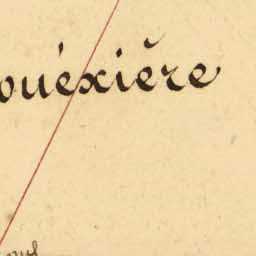 ouéxière